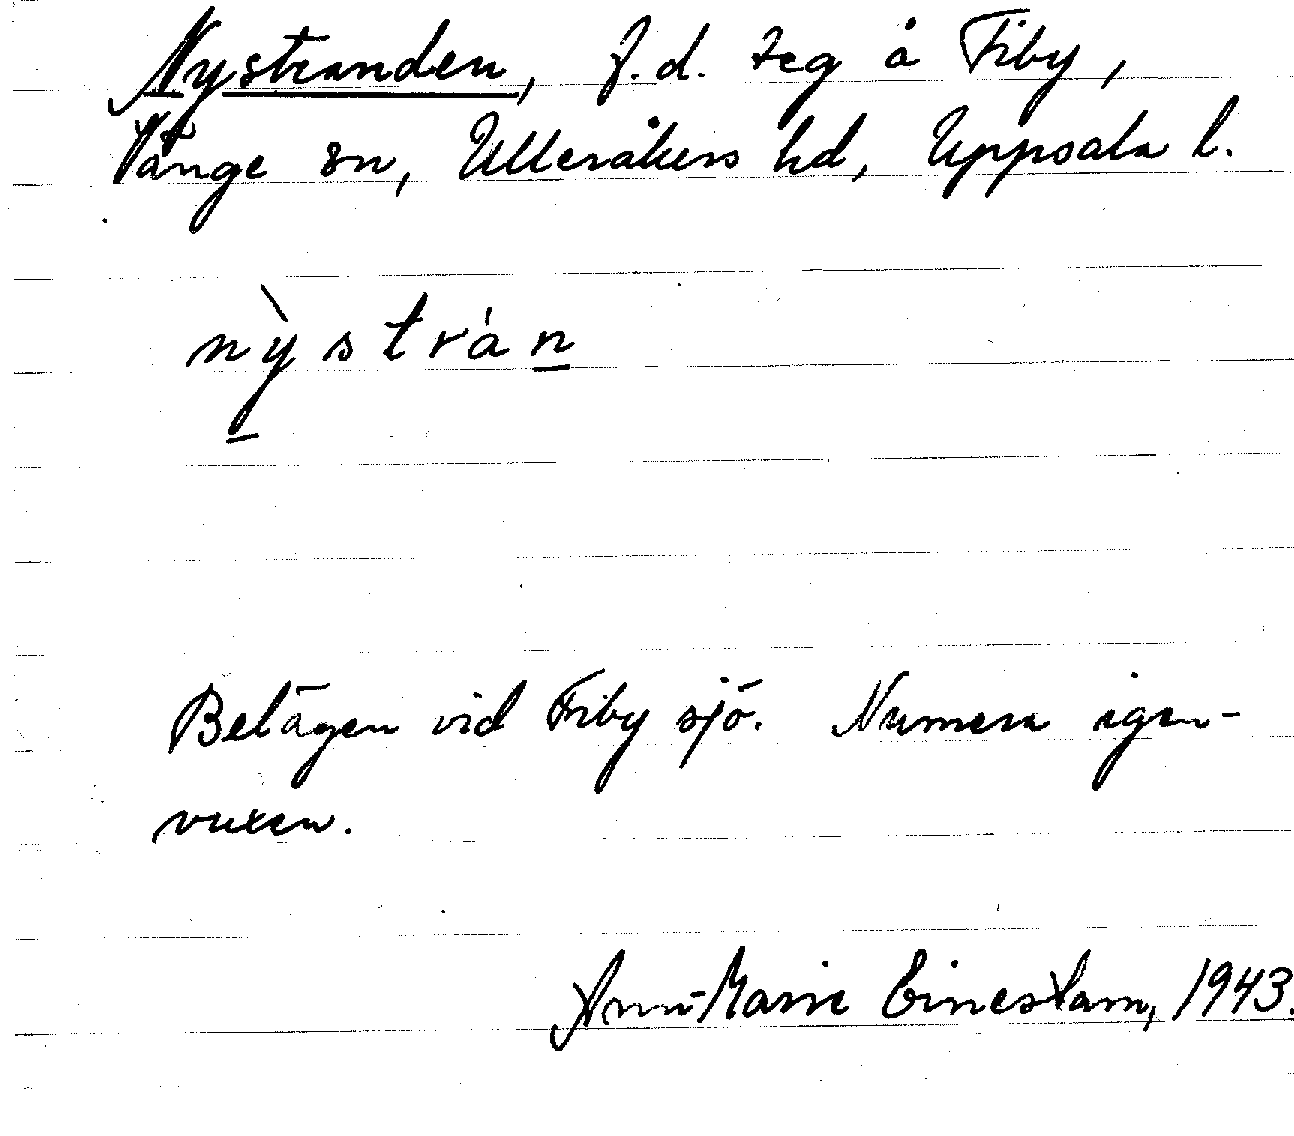 Nystranden, f.d. teg å Fiby,
Vänge sn, Ulleråkers hd, Uppsala l.
nỳstrán
Belägen vid Fiby sjö. Numera igen-
vuxen.
Ann-Marie Eineslam, 1943.